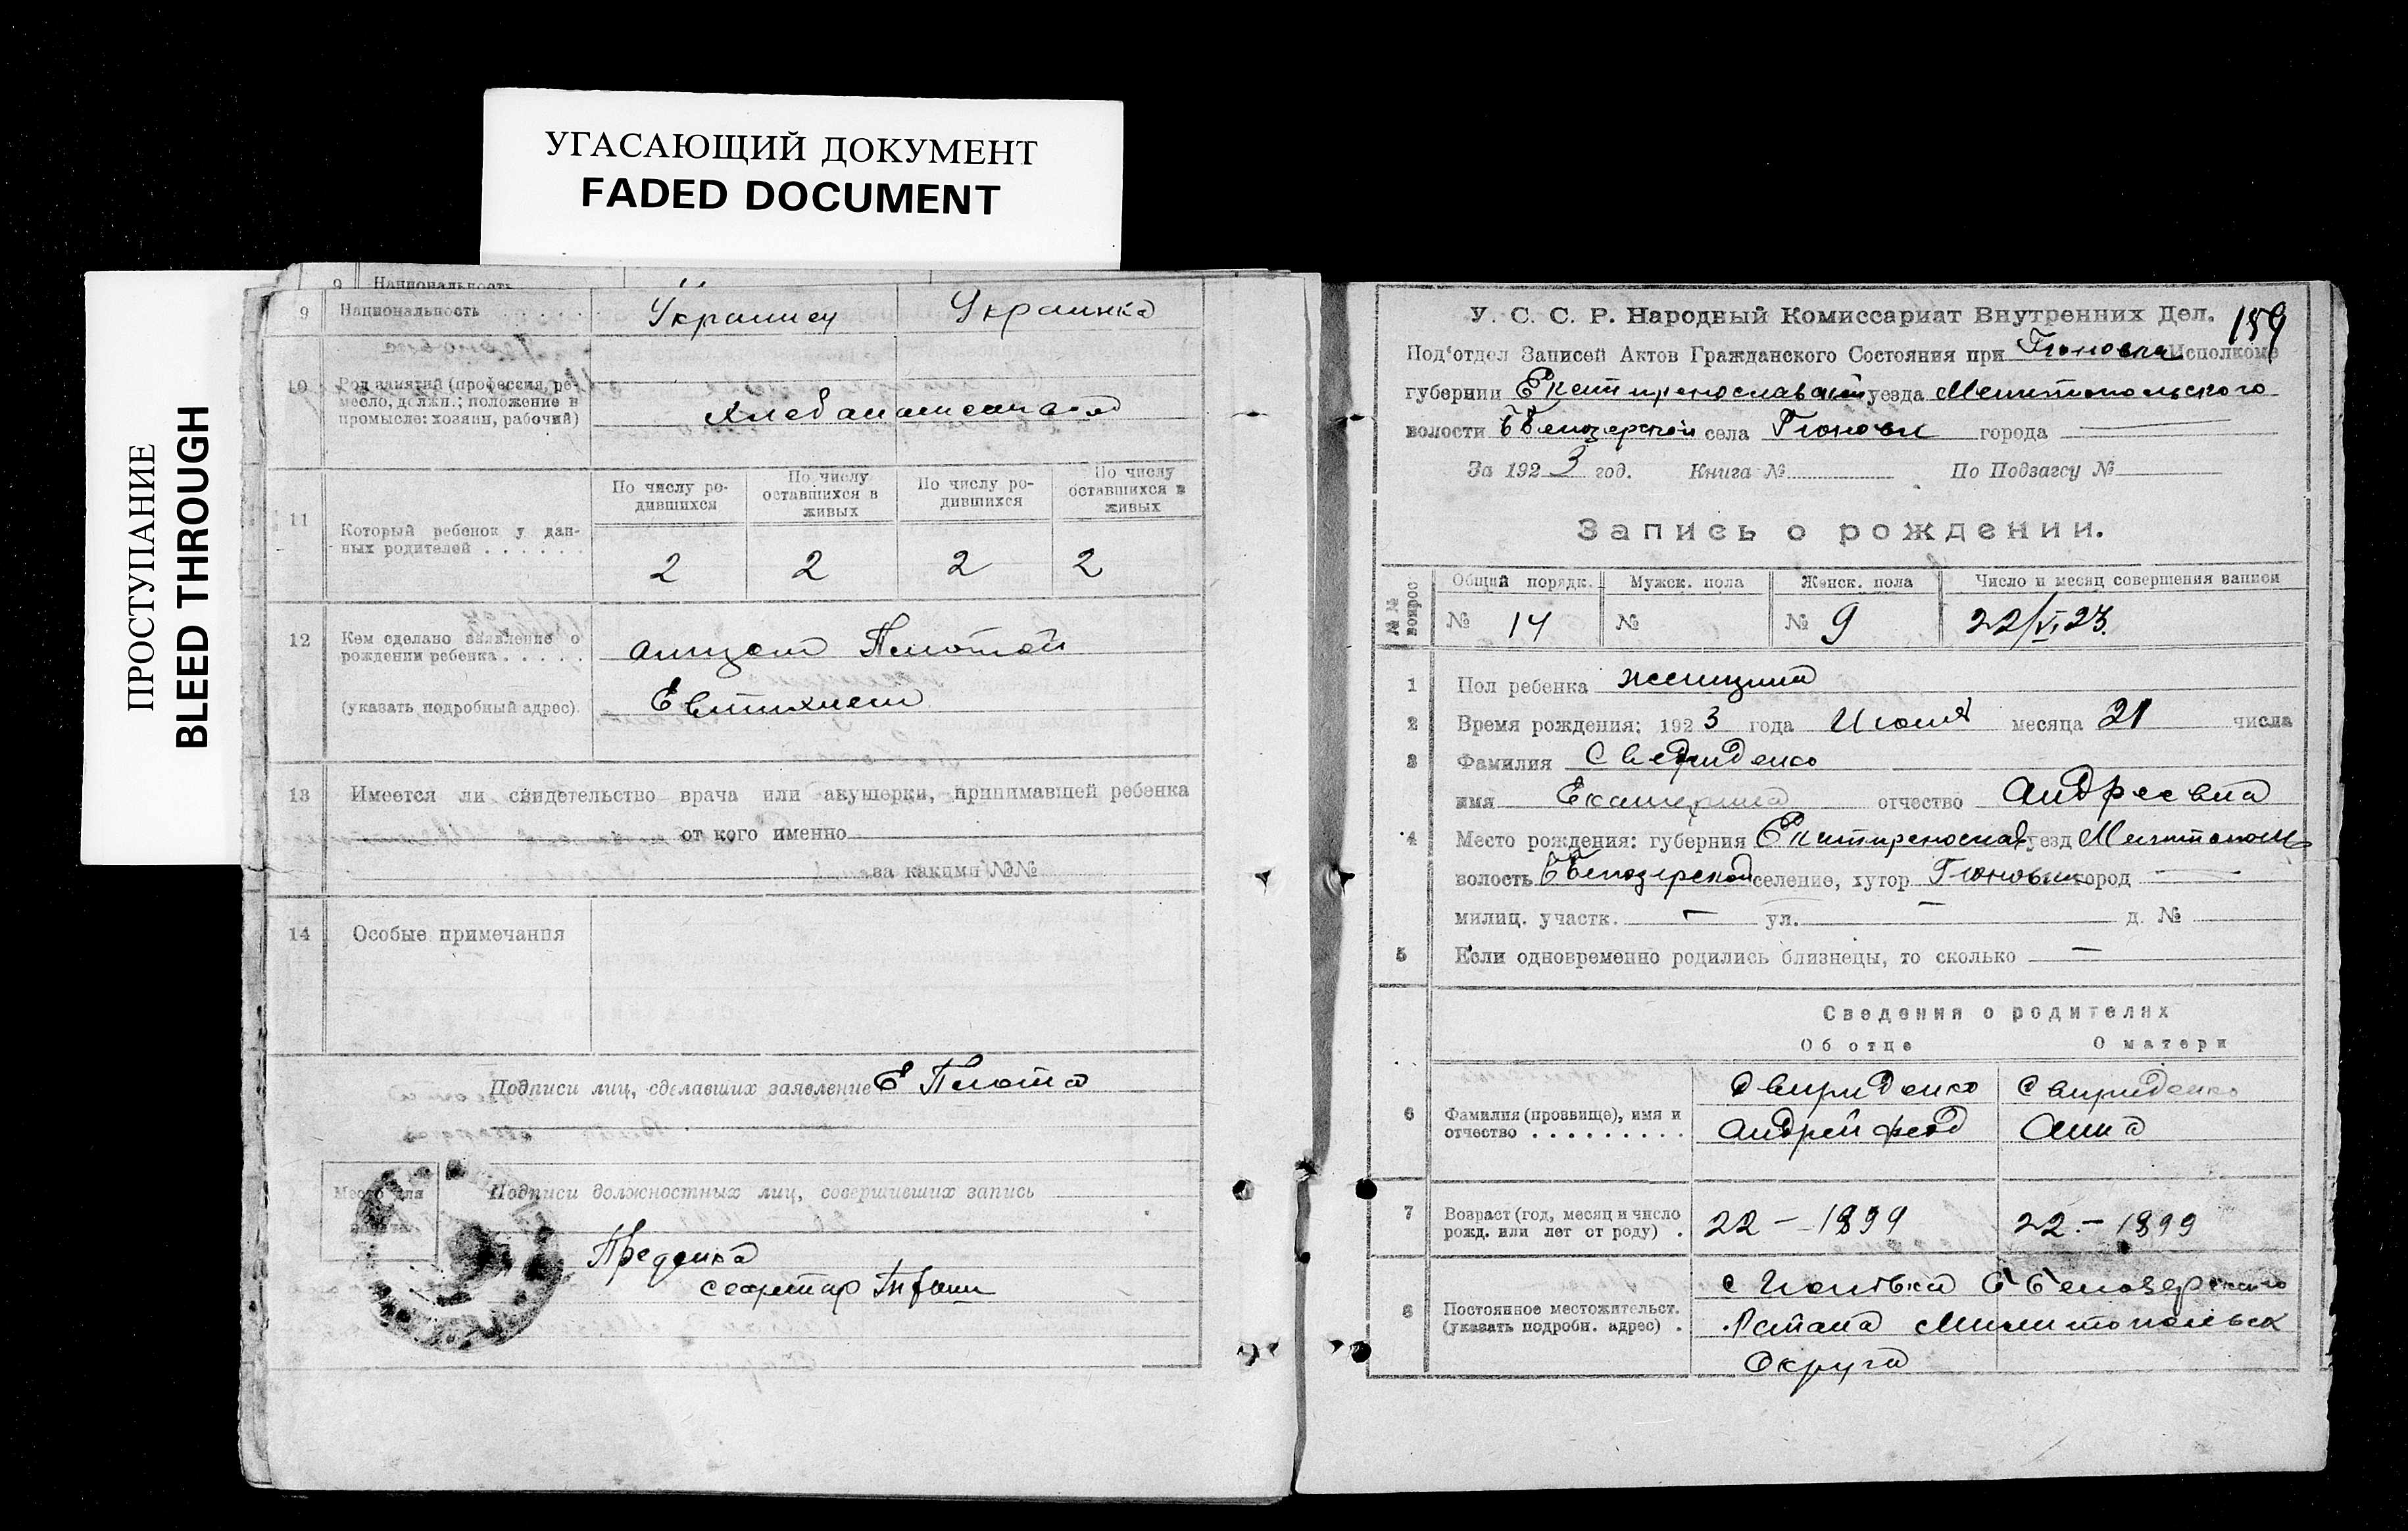 УГАСАЮЩИЙ ДОКУМЕНТ
FADED DOCUMENT
ПРОСТУПАНИЕ
BLEED THROUGH
9 Национальность
9 Национальность . . . . . Украинец Украинка
10 Род занятий (профессия, ре-
месло, должн.; положение в
промысле: хозяин, рабочий)
11 Который ребенок у дан-
ных родителей . . . . . .
По числу ро-
дившихся
По числу
оставшихся в
живых
По числу ро-
дившихся
По числу
оставшихся в
живых
2 2 2 2
12 Кем сделано заявление о
рождении ребенка . . . . .
(указать подробный адрес).
отцом Плотой
Евтихием
13 Имеется ли свидетельство врача или акушерки, принимавшей ребенка
от кого именно
за какими №№
14 Особые примечания
Подписи лиц, сделавших заявление Е Плота
Место для
печати
Подписи должностных лиц, совершивших запись
секретар
У. С. С. Р. Народный Комиссариат Внутренних Дел. 159
Под'отдел Записей Актов Гражданского Состояния при Исполкоме
губернии уезда Мелитопольского
волости села города
За 1923 год. Книга № По Подзагсу №
Запись о рождении.
№№ вопрос
Общий порядк. Мужск. пола Женск. пола Число и месяц совершения записи
№ 14 № № 9 22/VI 23.
1 Пол ребенка женщина
2 Время рождения: 1923 года Июня месяца 21 числа
3 Фамилия Свериденко
имя Екатерина отчество Андреевна
4 Место рождения: губерния уезд
волость селение, хутор город —
милиц. участк. — ул. — д. №
5 Если одновременно родились близнецы, то сколько —
Сведения о родителях
Об отце О матери
6 Фамилия (прозвище), имя и
отчество . . . . . . . . .
Свириденко Свириденко
Андрей Федо Анна
7 Возраст (год, месяц и число
рожд. или лет от роду) .
22 — 1899 22 — 1899
8 Постоянное местожительст.
(указать подробн. адрес) .
Округа